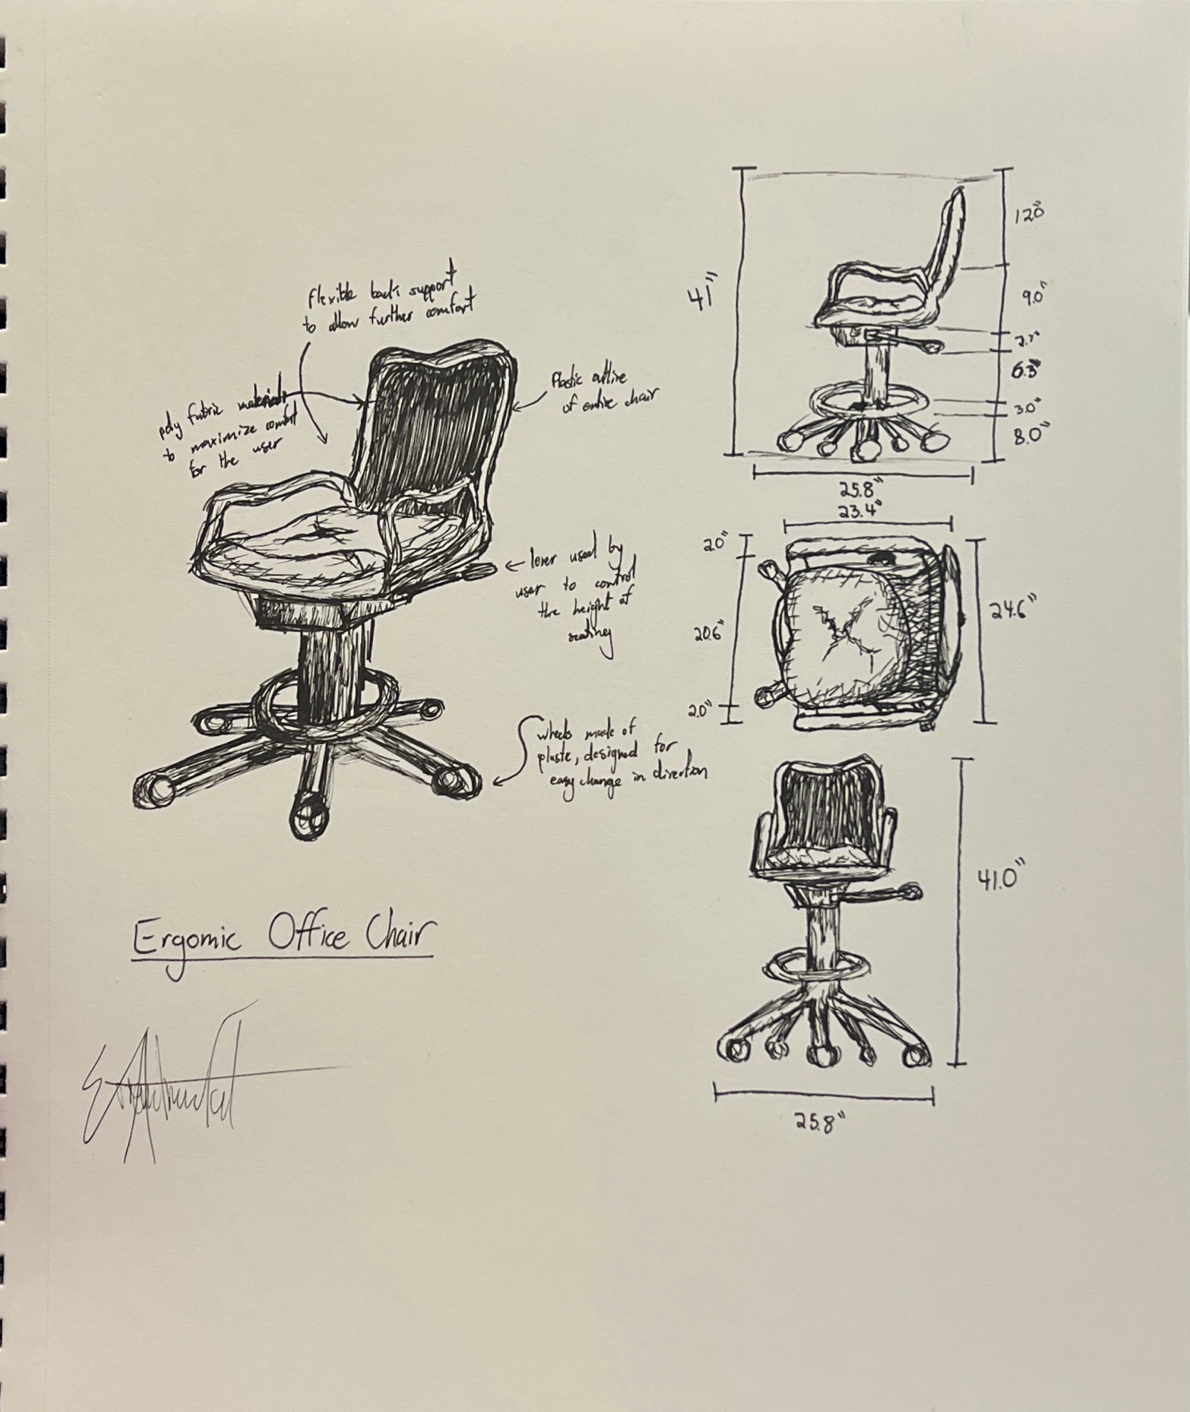 flexible back support
to allow further comfort
poly fabric materials
to maximize comfort
for the user
Plastic outline
of entire chair
lever used by
user to control
the height of
seating
wheels made of
plastc, designed for
easy change in direction
Ergomic Office Chair
41"
12.0"
9.0"
2.7"
6.3"
3.0"
8.0"
25.8"
23.4"
2.0"
20.6"
2.0"
24.6"
41.0"
25.8"